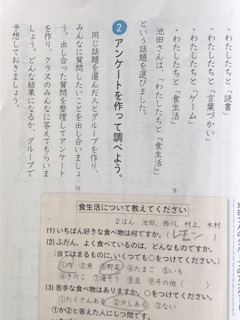 ・わたしたちと「読書」
・わたしたちと「言葉づかい」
・わたしたちと「ゲーム」
・わたしたちと「食生活」
池田さんは、「わたしたちと『食生活』」
という話題を選びました。
2 アンケートを作って調べよう。
同じ話題を選んだ人とグループを作り、
みんなに質問したいことを出し合いましょ
う。出し合った質問を整理してアンケート
を作り、クラスのみんなに答えてもらいま
しょう。どんな結果になるか、グループで
予想しておきましょう。
5
10
食生活について教えてください
2はん 池田、西川、村上、木村
(1) いちばん好きな食べ物は何ですか。(レモン)
(2) ふだん、よく食べているのは、どんなものですか。
(当てはまるものに、いくつでも○をつけてください。)
①肉 ②魚 ③野菜 ④たまご ⑤いも
⑥きのこ ⑦海そう ⑧豆 ⑨その他( )
(3) 苦手な食べ物はありますか。○をつけてください。
①たくさんある ②少しある ③ない
①か②と答えた人にしつ問です。